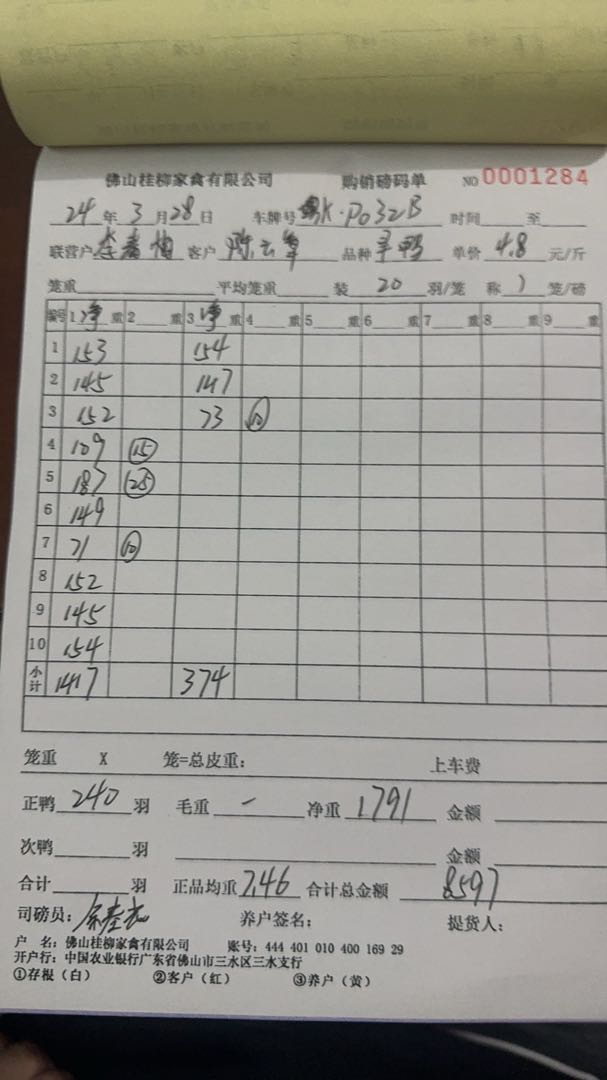 佛山桂柳家禽有限公司 购销磅码单 NO 0001284
24 年 3 月 28 日 车牌号 P032B 时间 至
联营户 李 客户 陈云 品种 鸭 单价 4.8 元/斤
笼重 平均笼重 装 20 羽/笼 称 1 笼/磅
编号 1 净 重 2 重 3 净 重 4 重 5 重 6 重 7 重 8 重 9 重
1 153 154
2 145 147
3 152 73 10
4 109 15
5 187 25
6 149
7 71 10
8 152
9 145
10 154
小计 1417 374
笼重 X 笼=总皮重: 上车费
正鸭 240 羽 毛重 — 净重 1791 金额
次鸭 羽 金额
合计 羽 正品均重 7.46 合计总金额 8597
司磅员: 养户签名: 提货人:
户 名: 佛山桂柳家禽有限公司 账号: 444 401 010 400 169 29
开户行: 中国农业银行广东省佛山市三水区三水支行
①存根(白) ②客户(红) ③养户(黄)